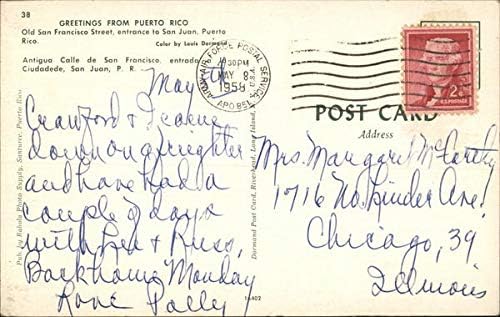 38
GREETINGS FROM PUERTO RICO
Old San Francisco Street, entrance to San Juan, Puerto
Rico.
Color by Louis Dormand
Antigua Calle de San Francisco, entrada
Ciudadede, San Juan, P. R.
ARMY-AIR FORCE POSTAL SERVICE
30PM
MAY 8
1958
APO 851
U.S.A.
2¢
U.S. POSTAGE
POST CARD
Address
May 7th
Crawford &
down on a freighter
and have had a
couple of days
with Lea & Russ,
Back home Monday
Love Polly
Mrs. Margaret McCarthy
1716 No. Linder Ave!
Chicago, 39
Illinois
Pub. by Rahola Photo Supply, Santurce, Puerto Rico.
Dormand Post Card, Riverhead, Long Island,
16402